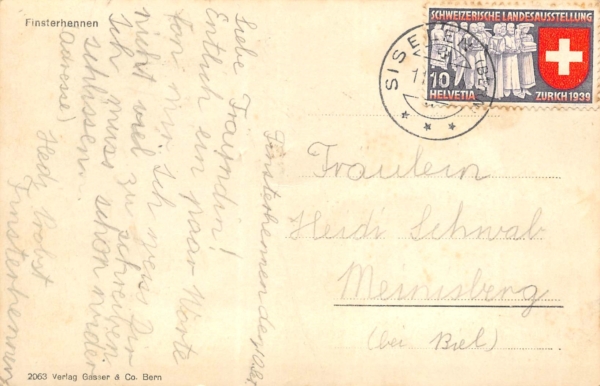 Finsterhennen
Liebe Fraundin!
Entlich ein paar Worte
fon mir ich weis Dir
nicht viel zu schreiben.
Ich muss schon wider
schlussen.
Adresse)
Hedy Probst
Finsterhennen
Finsterhennen
SCHWEIZERISCHE LANDESAUSSTELLUNG
10
HELVETIA
ZURICH 1939
SISELEN (BERN)
Fräulein
Heidi Schwab
Meinisberg
(bei Biel)
2063 Verlag Gasser & Co. Bern